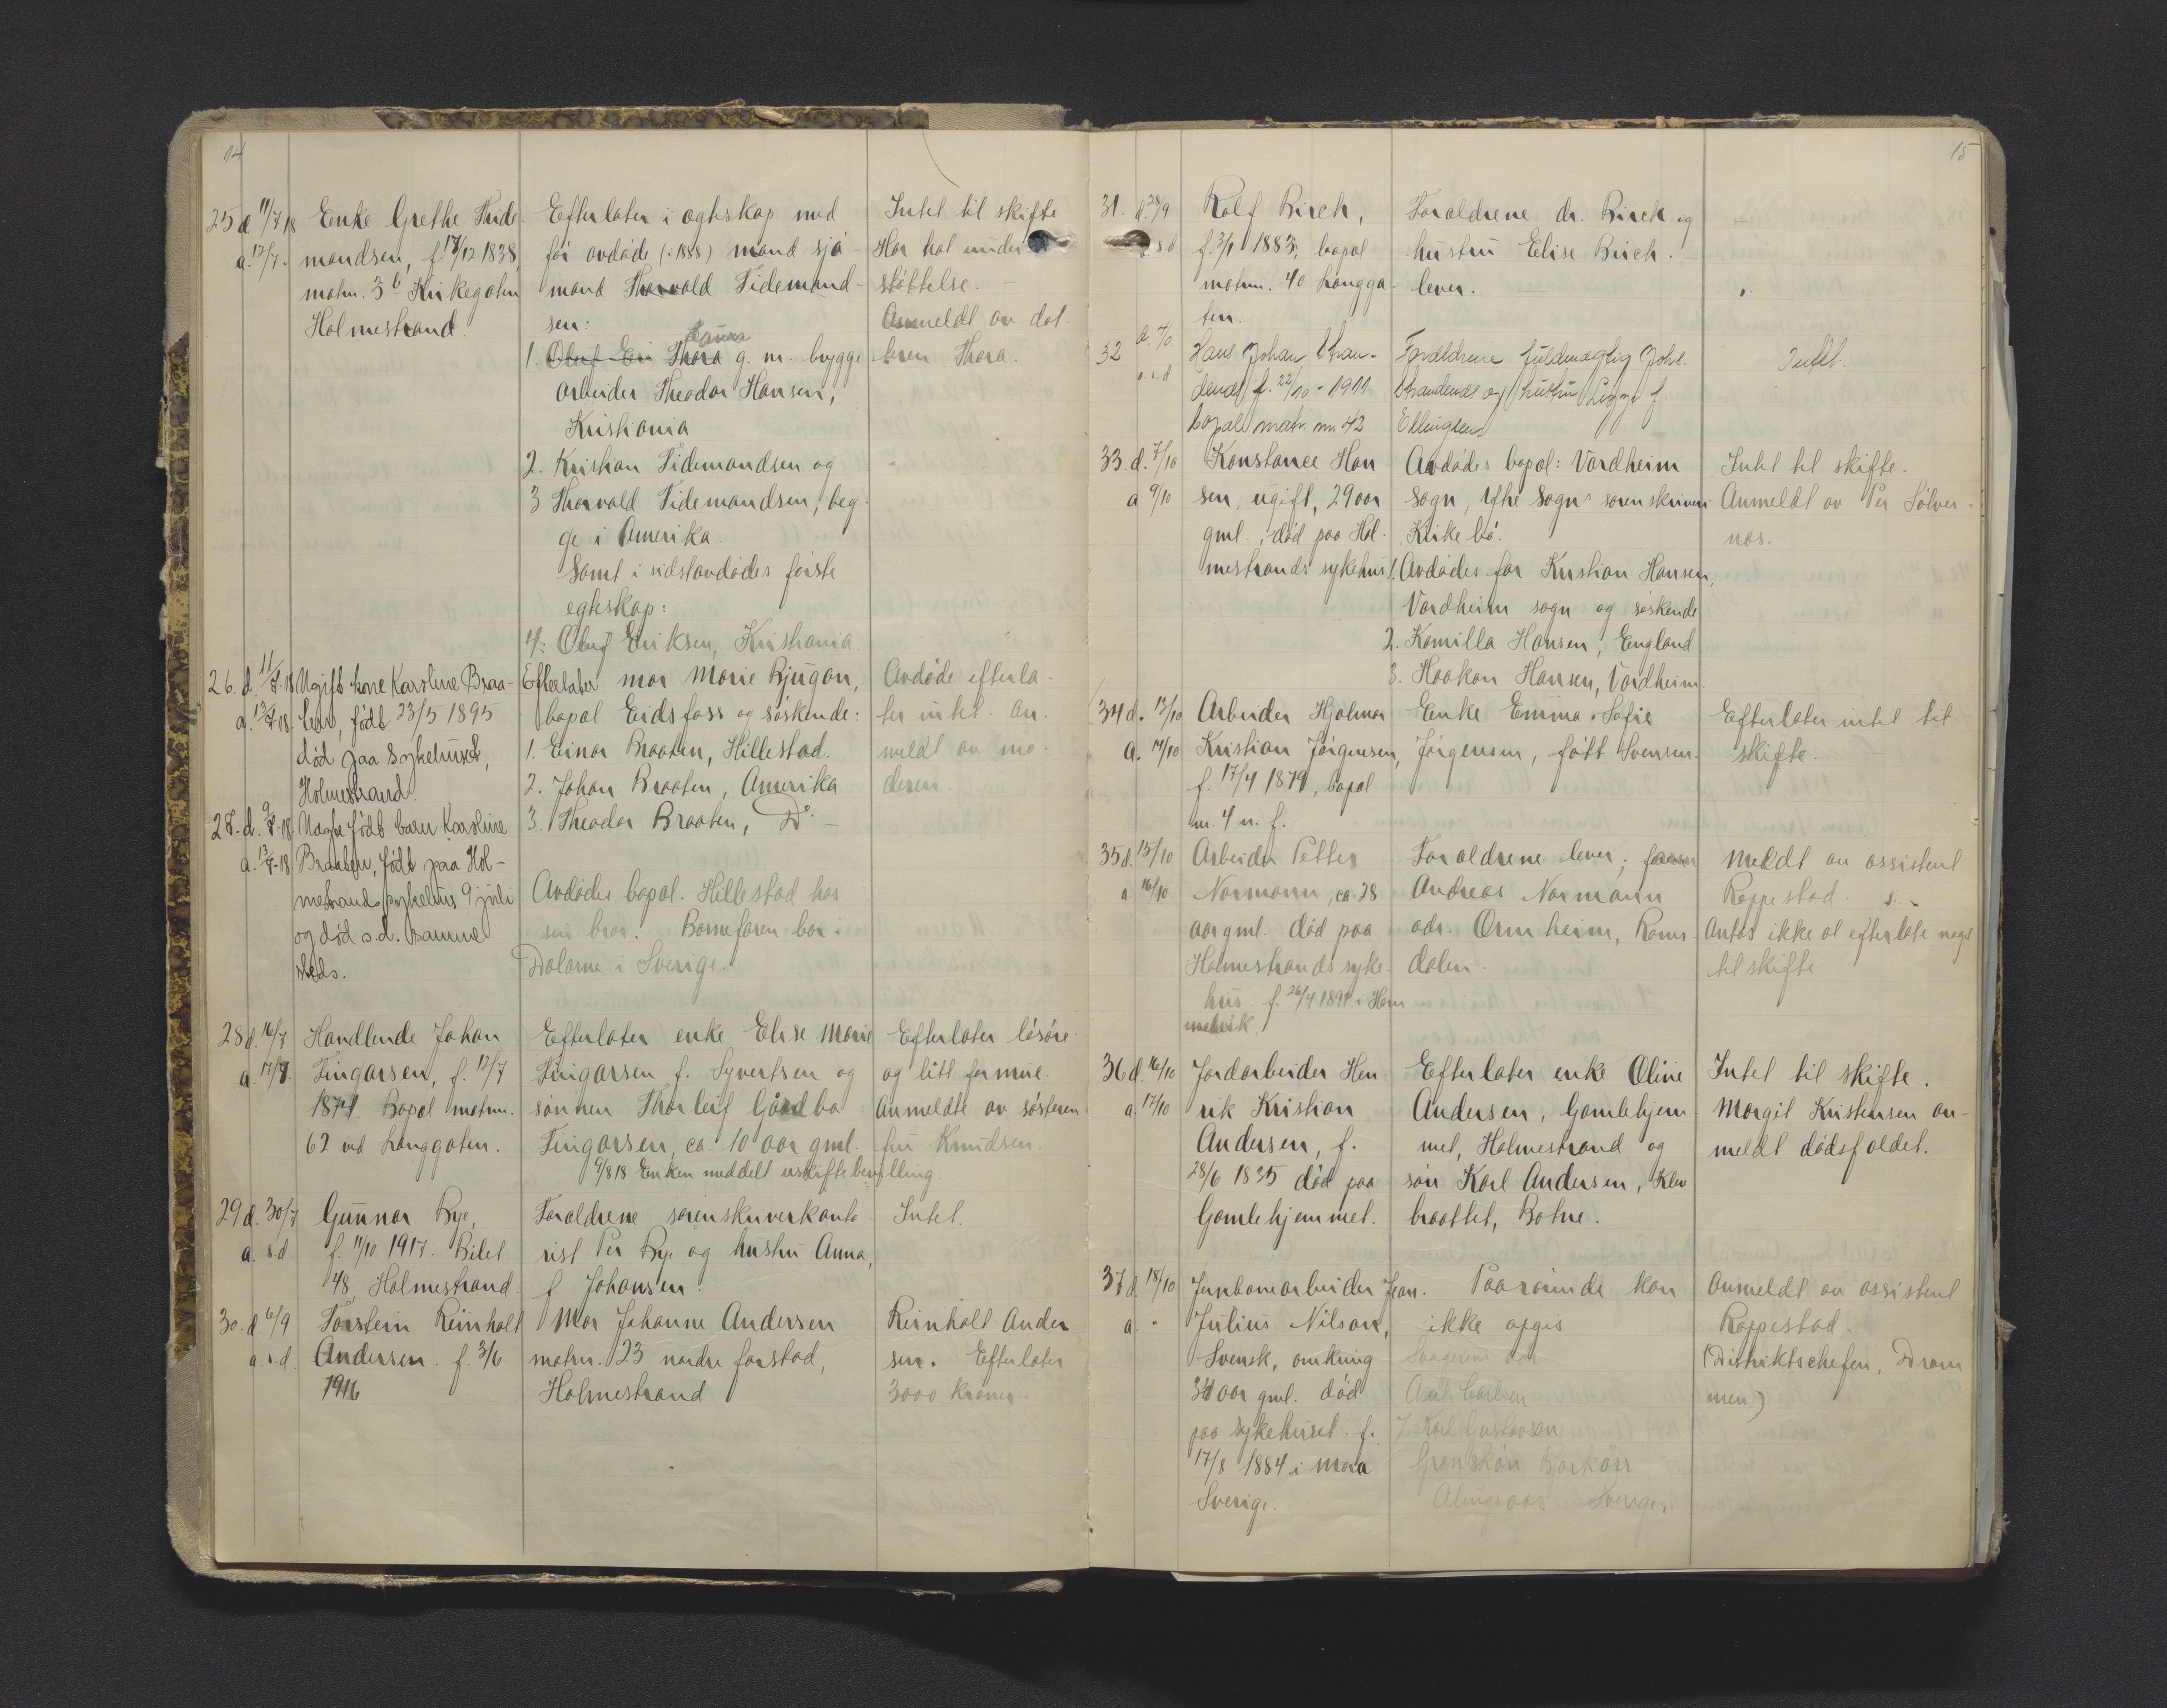 14
25 d 11/7 18
a. 12/7.
Enke Grethe Tide-
mandsen, f. 17/12 1838,
matr. 3 b Kirkegaten
Holmestrand.
Efterlater i egteskap med
før avdøde (1888) mand sjø-
mand Thorvald Tidemand-
sen:
1. Thora g. m. brygge
arbeider Theodor Hansen,
Kristiania
2. Kristian Tidemandsen og
3 Thorvald Tidemandsen, beg-
ge i Amerika.
Samt i sidstavdødes første
egteskap:
4: Oluf Eriksen, Kristiania
Intet til skifte
Har hat under
støttelse. –
Anmeldt av dat
teren Thora.
26. d. 11/7-18
a. 13/7-18.
Ugift kone Karoline Braa-
ten, født 23/5 1895
død paa sykehuset,
Holmestrand.
Efterlater mor Marie Bjugan,
bopæl Eidsfoss og søskende:
1. Einar Braaten, Hillestad.
2. Johan Braaten, Amerika
3. Theodor Braaten, Do –
Avdøde efterla-
ter intet. An-
meldt av mo-
deren.
27. d. 9/7-18.
a. 13/7-18
født barn Karoline
Braaten, født paa Hol-
mestrands sykehus 9 juli
og død s.d. samme
steds.
Avdødes bopæl. Hillestad hos
sin bror. Barnefaren bor i
Dalarne i Sverige.
28 d. 16/7
a. 17/7.
Handlende Johan
Fingarsen, f. 12/7
1874. Bopæl matrn.
62 ved Langgaten.
Efterlater enke Elise Marie
Fingarsen f. Syvertsen og
sønnen Thorleif
Fingarsen, ca. 10 aar gml.
9/8 18 Enken meddelt uskiftebevilling
Efterlater løsøre
og litt formue.
Anmeldte av søsteren
fru Knudsen.
29 d. 30/7
a. s.d
Gunnar Bye,
f. 11/10 1917. Bilet
48, Holmestrand
Forældrene sorenskriverkonto
rist Per Bye og hustru Anna,
f. Johansen.
Intet.
30. d. 6/9
a. s.d.
Torstein Reinholt
Andersen. f. 3/6
1916
Mor Johanne Andersen
matrn. 23 nordre forstad,
Holmestrand
Reinholt Ander
sen. Efterlater
3000 kroner.
15
31. d. 28/9
s d.
Rolf Birch,
f. 3/1 1883, bopæl
matrn. 40 Langga-
ten.
Forældrene dr. Birch og
hustru Elise Birch.
lever.
32
a. s.d
Hans Johan Stran-
denæs, f. 22/10 - 1911
bopæl matr. nr. 42
Forældrene fuldmægtig Johs.
Strandenæs og hustru f.
Ellingsen
Intet.
33. d. 7/10
a 9/10
Konstance Han-
sen, ugift, 29 aar
gml., død paa Hol-
mestrands sykehus
Avdødes bopæl: Vardheim
Sogn, Ytre Sogns sorenskriveri
1. Avdødes far Kristian Hansen,
Vardheim sogn og søskende
2. Kamilla Hansen, England
3. Haakon Hansen, Vardheim.
Intet til skifte.
Anmeldt av Per Sølver-
næs.
34 d. 13/10
a. 14/10
Arbeider Hjalmar
Kristian Jørgensen,
f. 17/4 1879, bopæl
nr. 4 n. f.
Enke Emma Sofie
Jørgensen, født Svensen.
Efterlater intet til
skifte.
35 d. 15/10
a 16/10
Arbeider Petter
Normann, ca. 28
aar gml. død paa
Holmestrands syke-
hus f. 26/4 1891 i Ham
melvik.
Forældrene lever; faren
Andreas Normann
adr. Ormheim, Roms-
dalen.
Meldt av assistent
Roppestad.
Antas ikke at efterlate noget
til skifte
36 d. 16/10
a. 17/10
Jordarbeider Hen-
rik Kristian
Andersen, f.
28/6 1835 død paa
Gamlehjemmet.
Efterlater enke Oline
Andersen, Gamlehjem
met, Holmestrand og
søn Karl Andersen, Klev
braattet, Botne.
Intet til skifte.
Margit Kristensen an-
meldt dødsfaldet.
37 d. 18/10
a. "
Jernbanearbeider Jean.
Julius Nilson,
Svensk, omkring
34 aar gml. død
paa sykehuset. f.
17/8 1884 i Mora
Sverige.
Paarørende kan
ikke opgis
Karl Gustavson
Alingsaas Sverige.
Anmeldt av assistent
Roppestad.
(Distriktschefen, Dram
men)